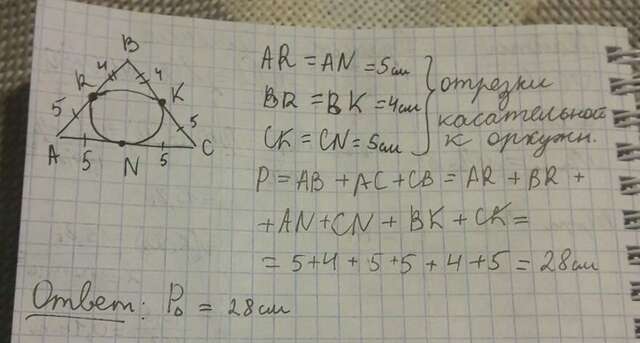 B
4 4
R K
5 5
A 5 N 5 C
AR = AN = 5см
BR = BK = 4см
CK = CN = 5см
отрезки
касательной
к окружн.
P = AB + AC + CB = AR + BR +
+ AN + CN + BK + CK =
= 5+4+5+5+4+5 = 28см
Ответ: P₀ = 28см